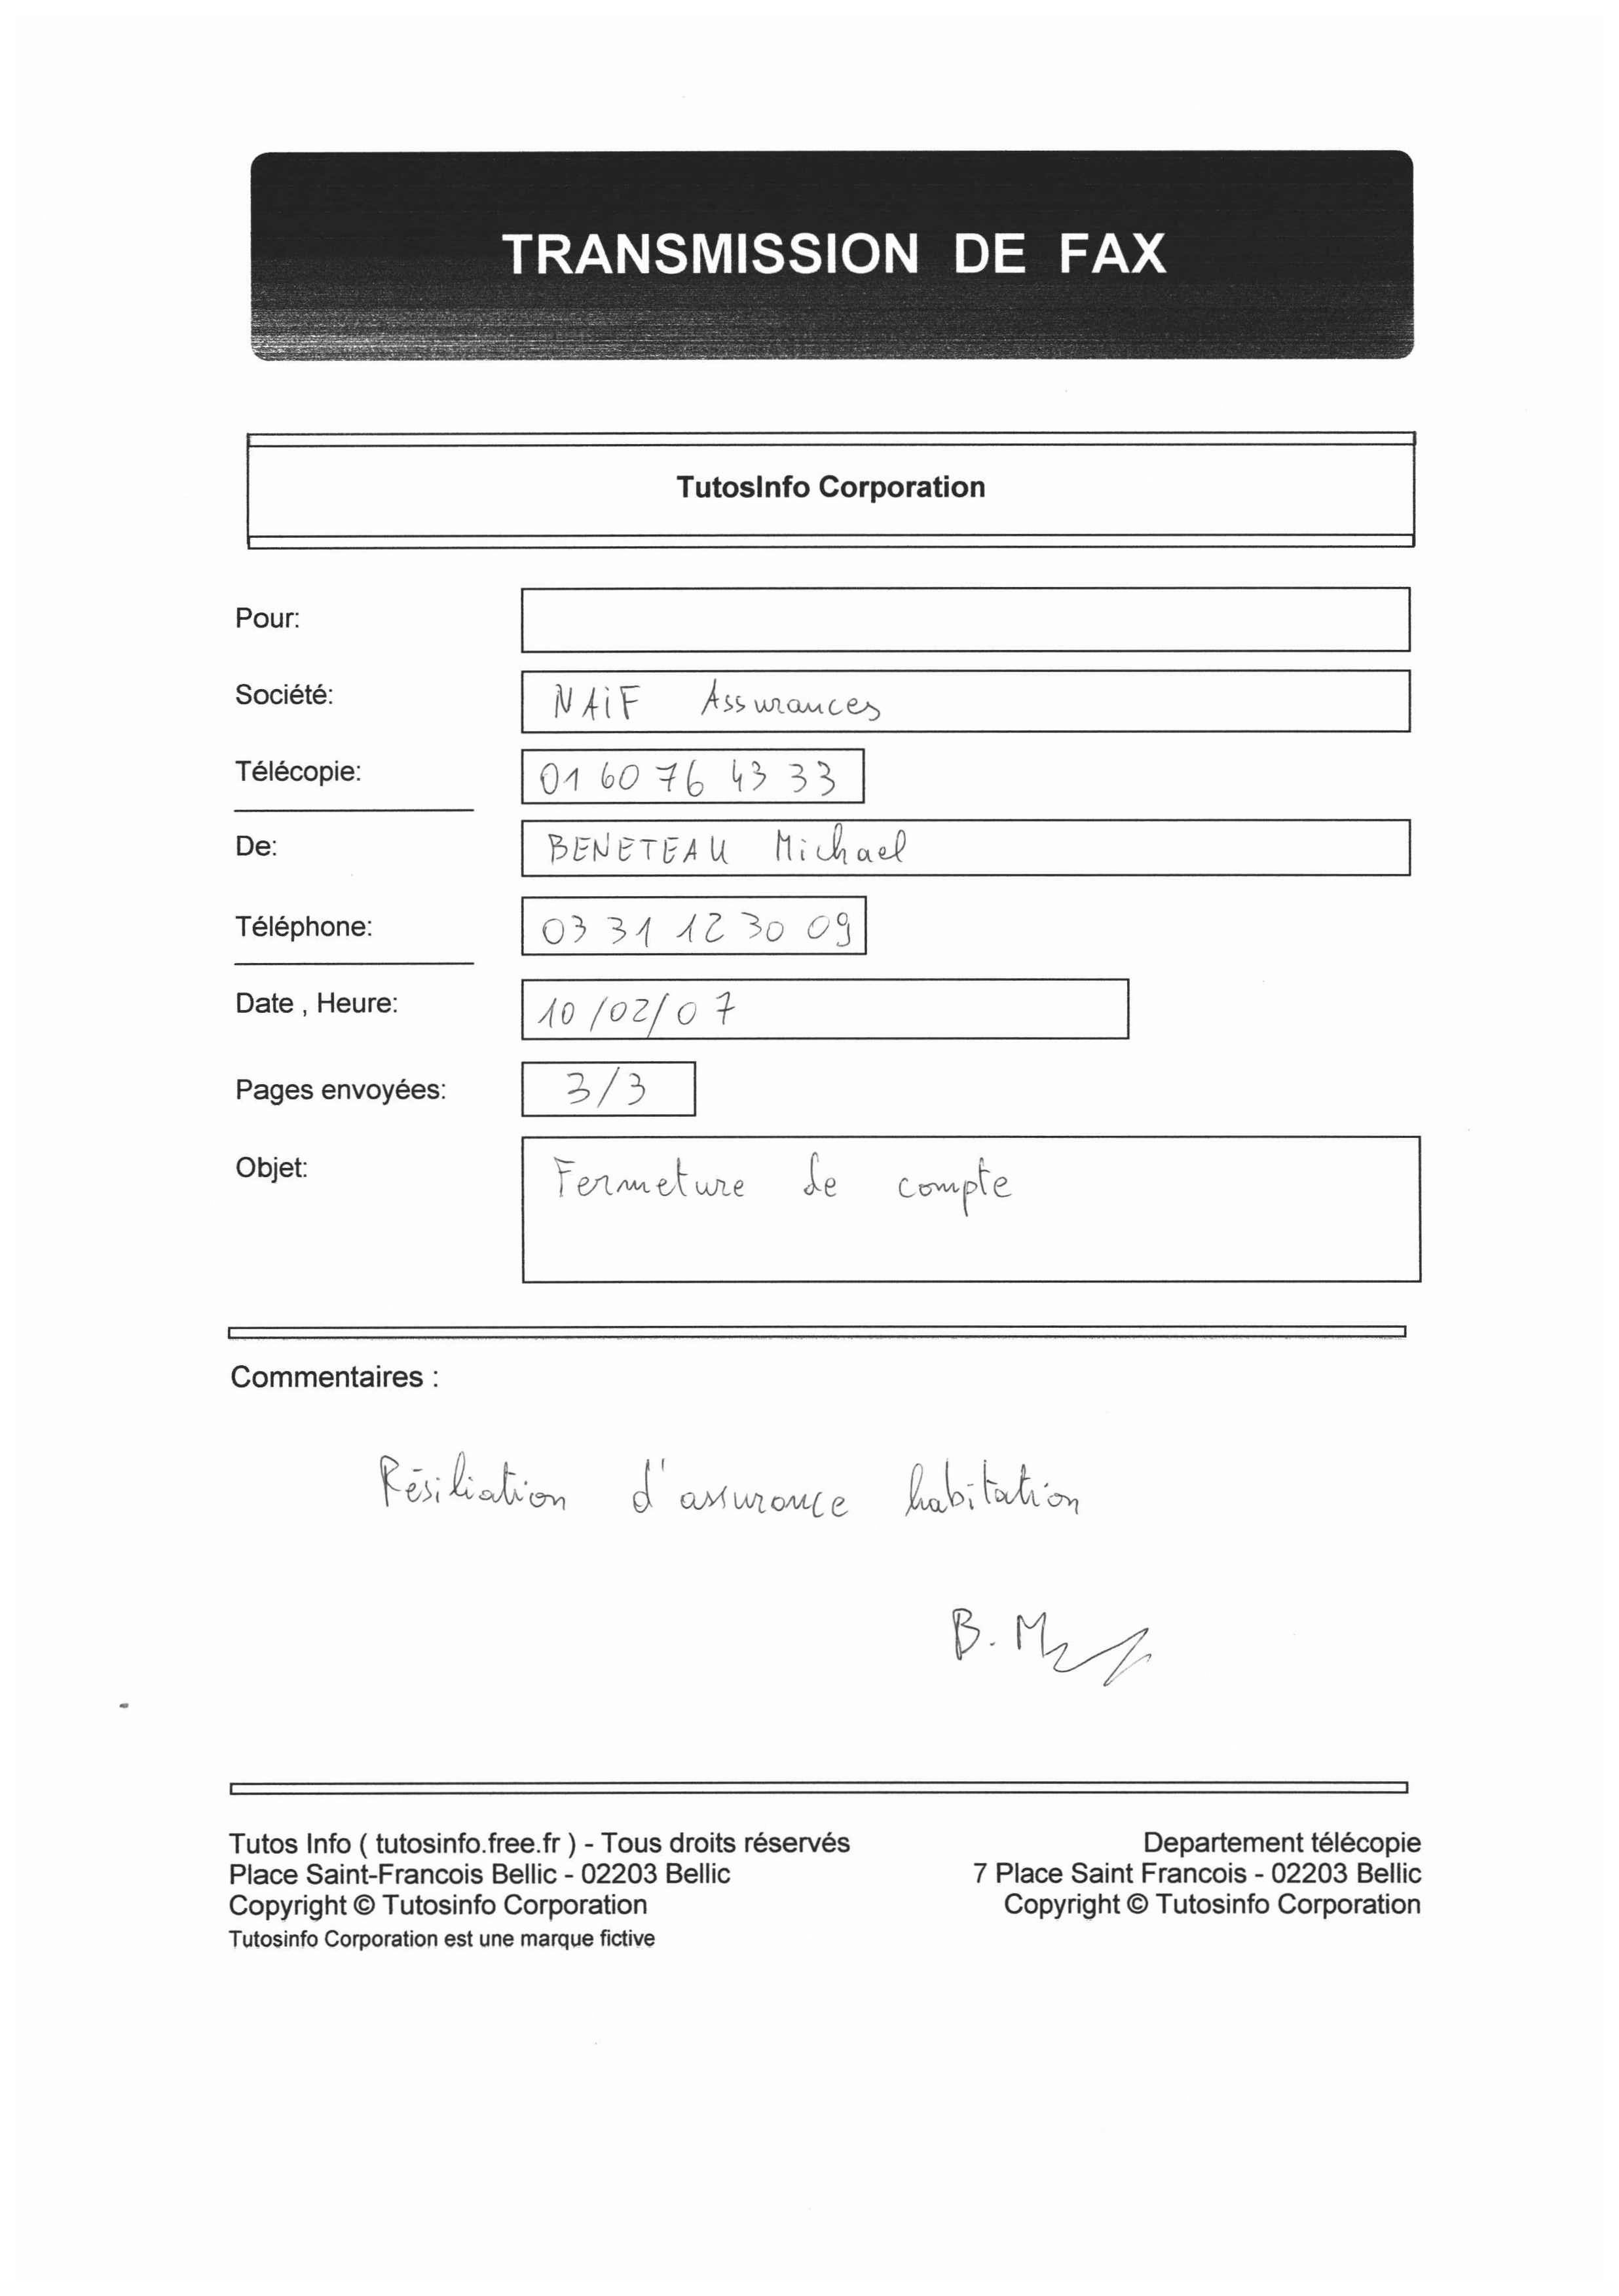 TRANSMISSION DE FAX
TutosInfo Corporation
Pour:
Société: NAiF Assurances
Télécopie: 01 60 76 43 33
De: BENETEAU Michael
Téléphone: 03 31 12 30 09
Date , Heure: 10/02/07
Pages envoyées: 3/3
Objet: Fermeture de compte
Commentaires :
Résiliation d'assurance habitation
B. M
Tutos Info ( tutosinfo.free.fr ) - Tous droits réservés
Place Saint-Francois Bellic - 02203 Bellic
Copyright © Tutosinfo Corporation
Tutosinfo Corporation est une marque fictive
Departement télécopie
7 Place Saint Francois - 02203 Bellic
Copyright © Tutosinfo Corporation